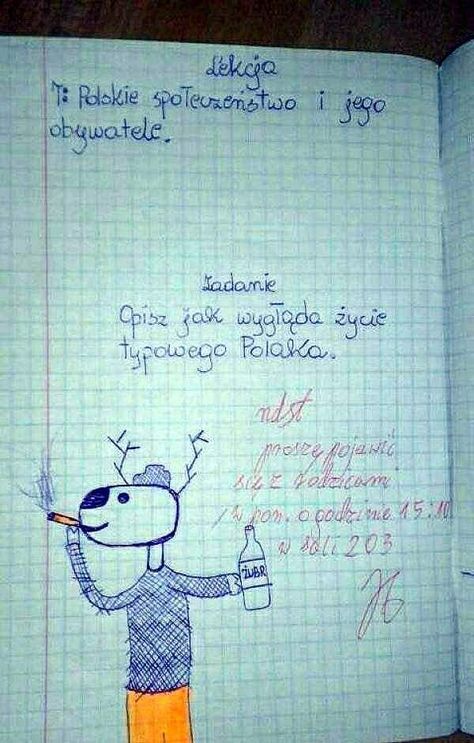 Lekcja
T: Polskie społeczeństwo i jego
obywatele.
Zadanie
Opisz jak wygłąda życie
typowego Polaka.
ndst
proszę pojawić
się z rodzicami
w pon. o godzinie 15.10
w sali 203
ŻUBR